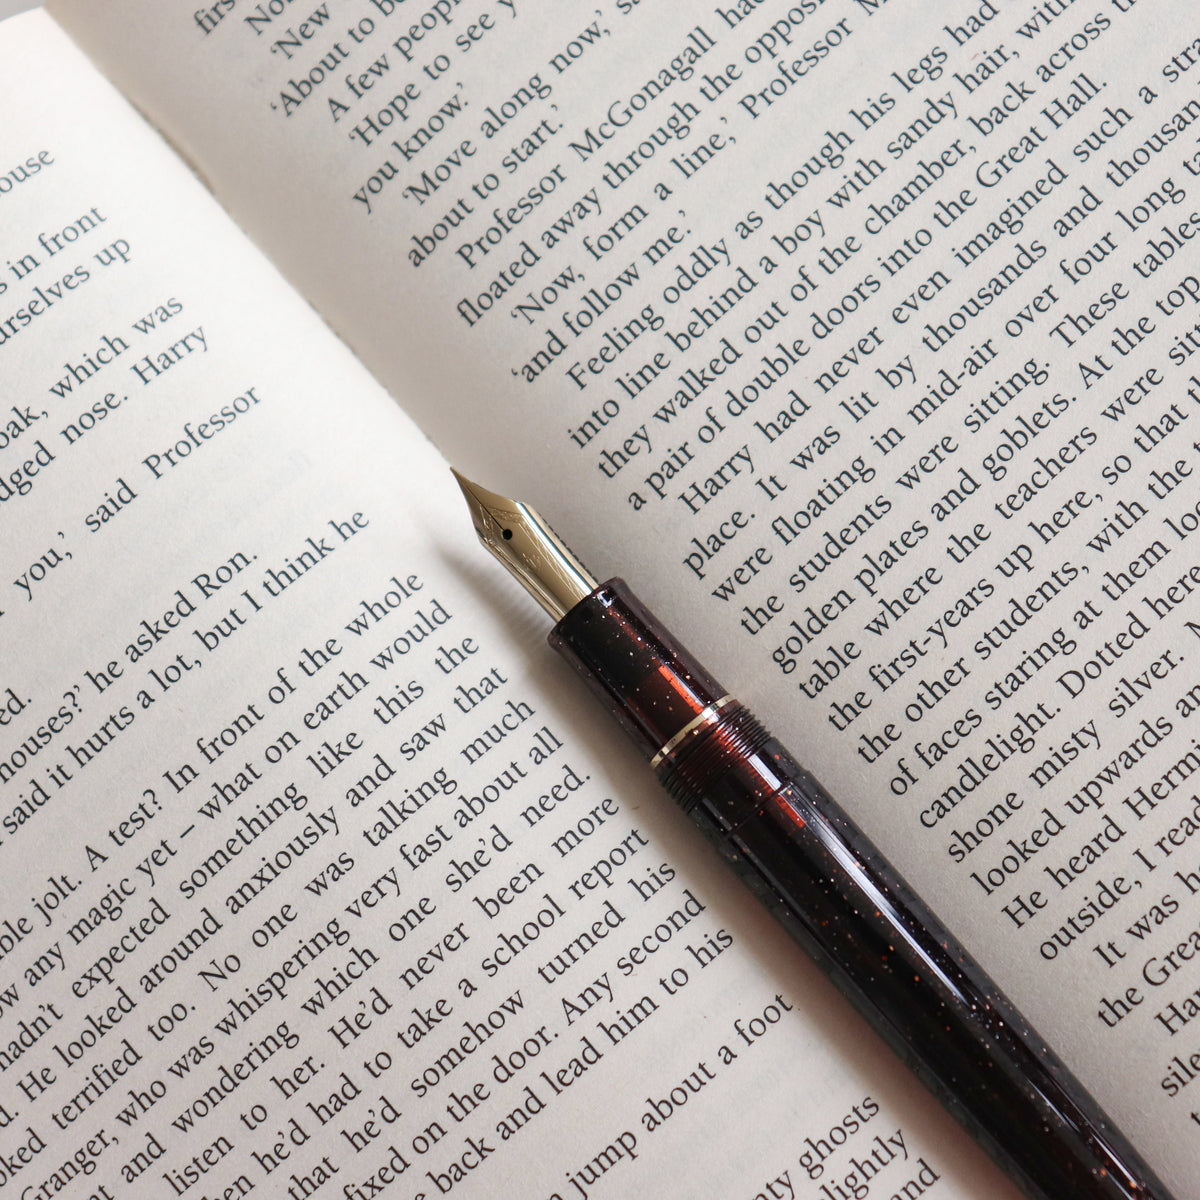 ouse
s in front
urselves up
oak, which was
dged nose. Harry
you,’ said Professor
ed.
houses?’ he asked Ron.
said it hurts a lot, but I think he
ble jolt. A test? In front of the whole
ow any magic yet – what on earth would
hadn’t expected something like this the
d. He looked around anxiously and saw that
oked terrified too. No one was talking much
Granger, who was whispering very fast about all
t and wondering which one she’d need.
listen to her. He’d never been more
hen he’d had to take a school report
that he’d somehow turned his
fixed on the door. Any second
back and lead him to his
n jump about a foot
nty ghosts
lightly
and
first
No
‘New
‘About to b
A few people
‘Hope to see y
you know.’
‘Move along now,’ sa
about to start.’
Professor McGonagall had
floated away through the opposi
‘Now, form a line,’ Professor M
‘and follow me.’
Feeling oddly as though his legs had
into line behind a boy with sandy hair, with
they walked out of the chamber, back across th
a pair of double doors into the Great Hall.
Harry had never even imagined such a stra
place. It was lit by thousands and thousan
were floating in mid-air over four long ta
the students were sitting. These tables
golden plates and goblets. At the top
table where the teachers were sitt
the first-years up here, so that t
the other students, with the t
of faces staring at them lo
candlelight. Dotted here
shone misty silver. M
looked upwards an
He heard Herm
outside, I rea
It was h
the Grea
Ha
sile